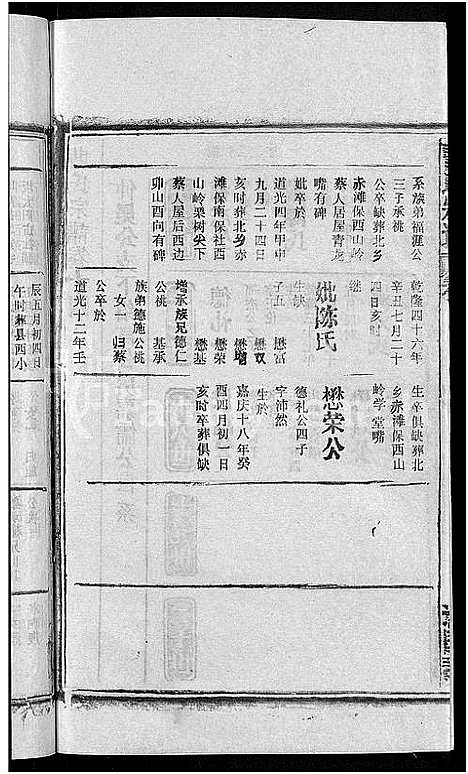 系族弟福涯公
三子承桃
公卒缺葬北乡
赤滩保西山岭
蔡人居屋青龙
嘴有碑
妣卒於
道光四年甲申
九月二十四日
亥时葬北乡赤
滩保南保社西
山岭栗树尖下
蔡人屋后西边
卯山酉向有碑
乾隆四十六年
辛丑七月二十
四日亥时
继
妣陈氏
生缺
子五
懋富
懋双
懋增
懋荣
懋基
增承族兄德仁
公桃
基承
族弟德施公桃
女一
归蔡
公卒於
道光十二年壬
生卒俱缺葬北
乡赤滩保西山
岭学堂嘴
懋荣公
德礼公四子
字沛然
生於
嘉庆十八年癸
酉四月初一日
亥时卒葬俱缺
辰五月初四日
午时葬县西小